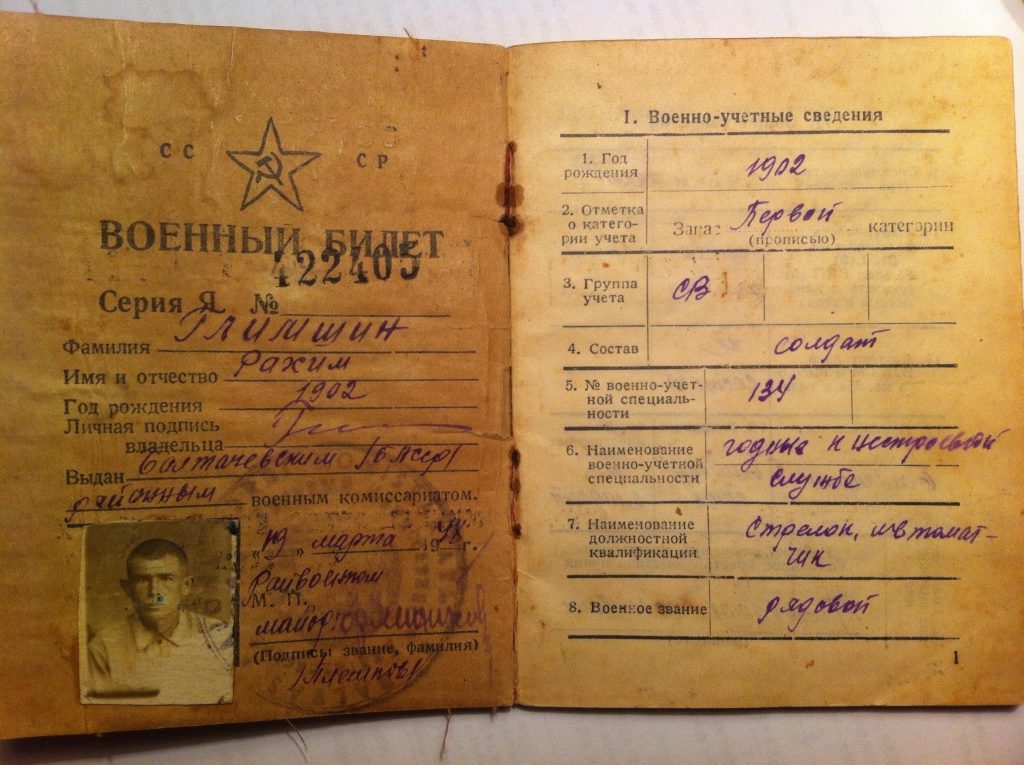 СС СР
ВОЕННЫЙ БИЛЕТ
Серия Я № 422405
Фамилия
Имя и отчество Рахим
Год рождения 1902
Личная подпись
владельца
Выдан Балтачевским /БАССР/
районным военным комиссариатом.
„19„ марта 1948 г.
Райвоенком
М. П.
майор
(Подпись, звание, фамилия)
I. Военно-учетные сведения
1. Год
рождения
1902
2. Отметка
о катего-
рии учета
Запас Первой категории
(прописью)
3. Группа
учета
СВ
4. Состав солдат
5. № военно-учет-
ной специаль-
ности
134
6. Наименование
военно-учетной
специальности
годные к нестроевой
службе
7. Наименование
должностной
квалификации
Стрелок, автомат-
чик
8. Военное звание рядовой
1